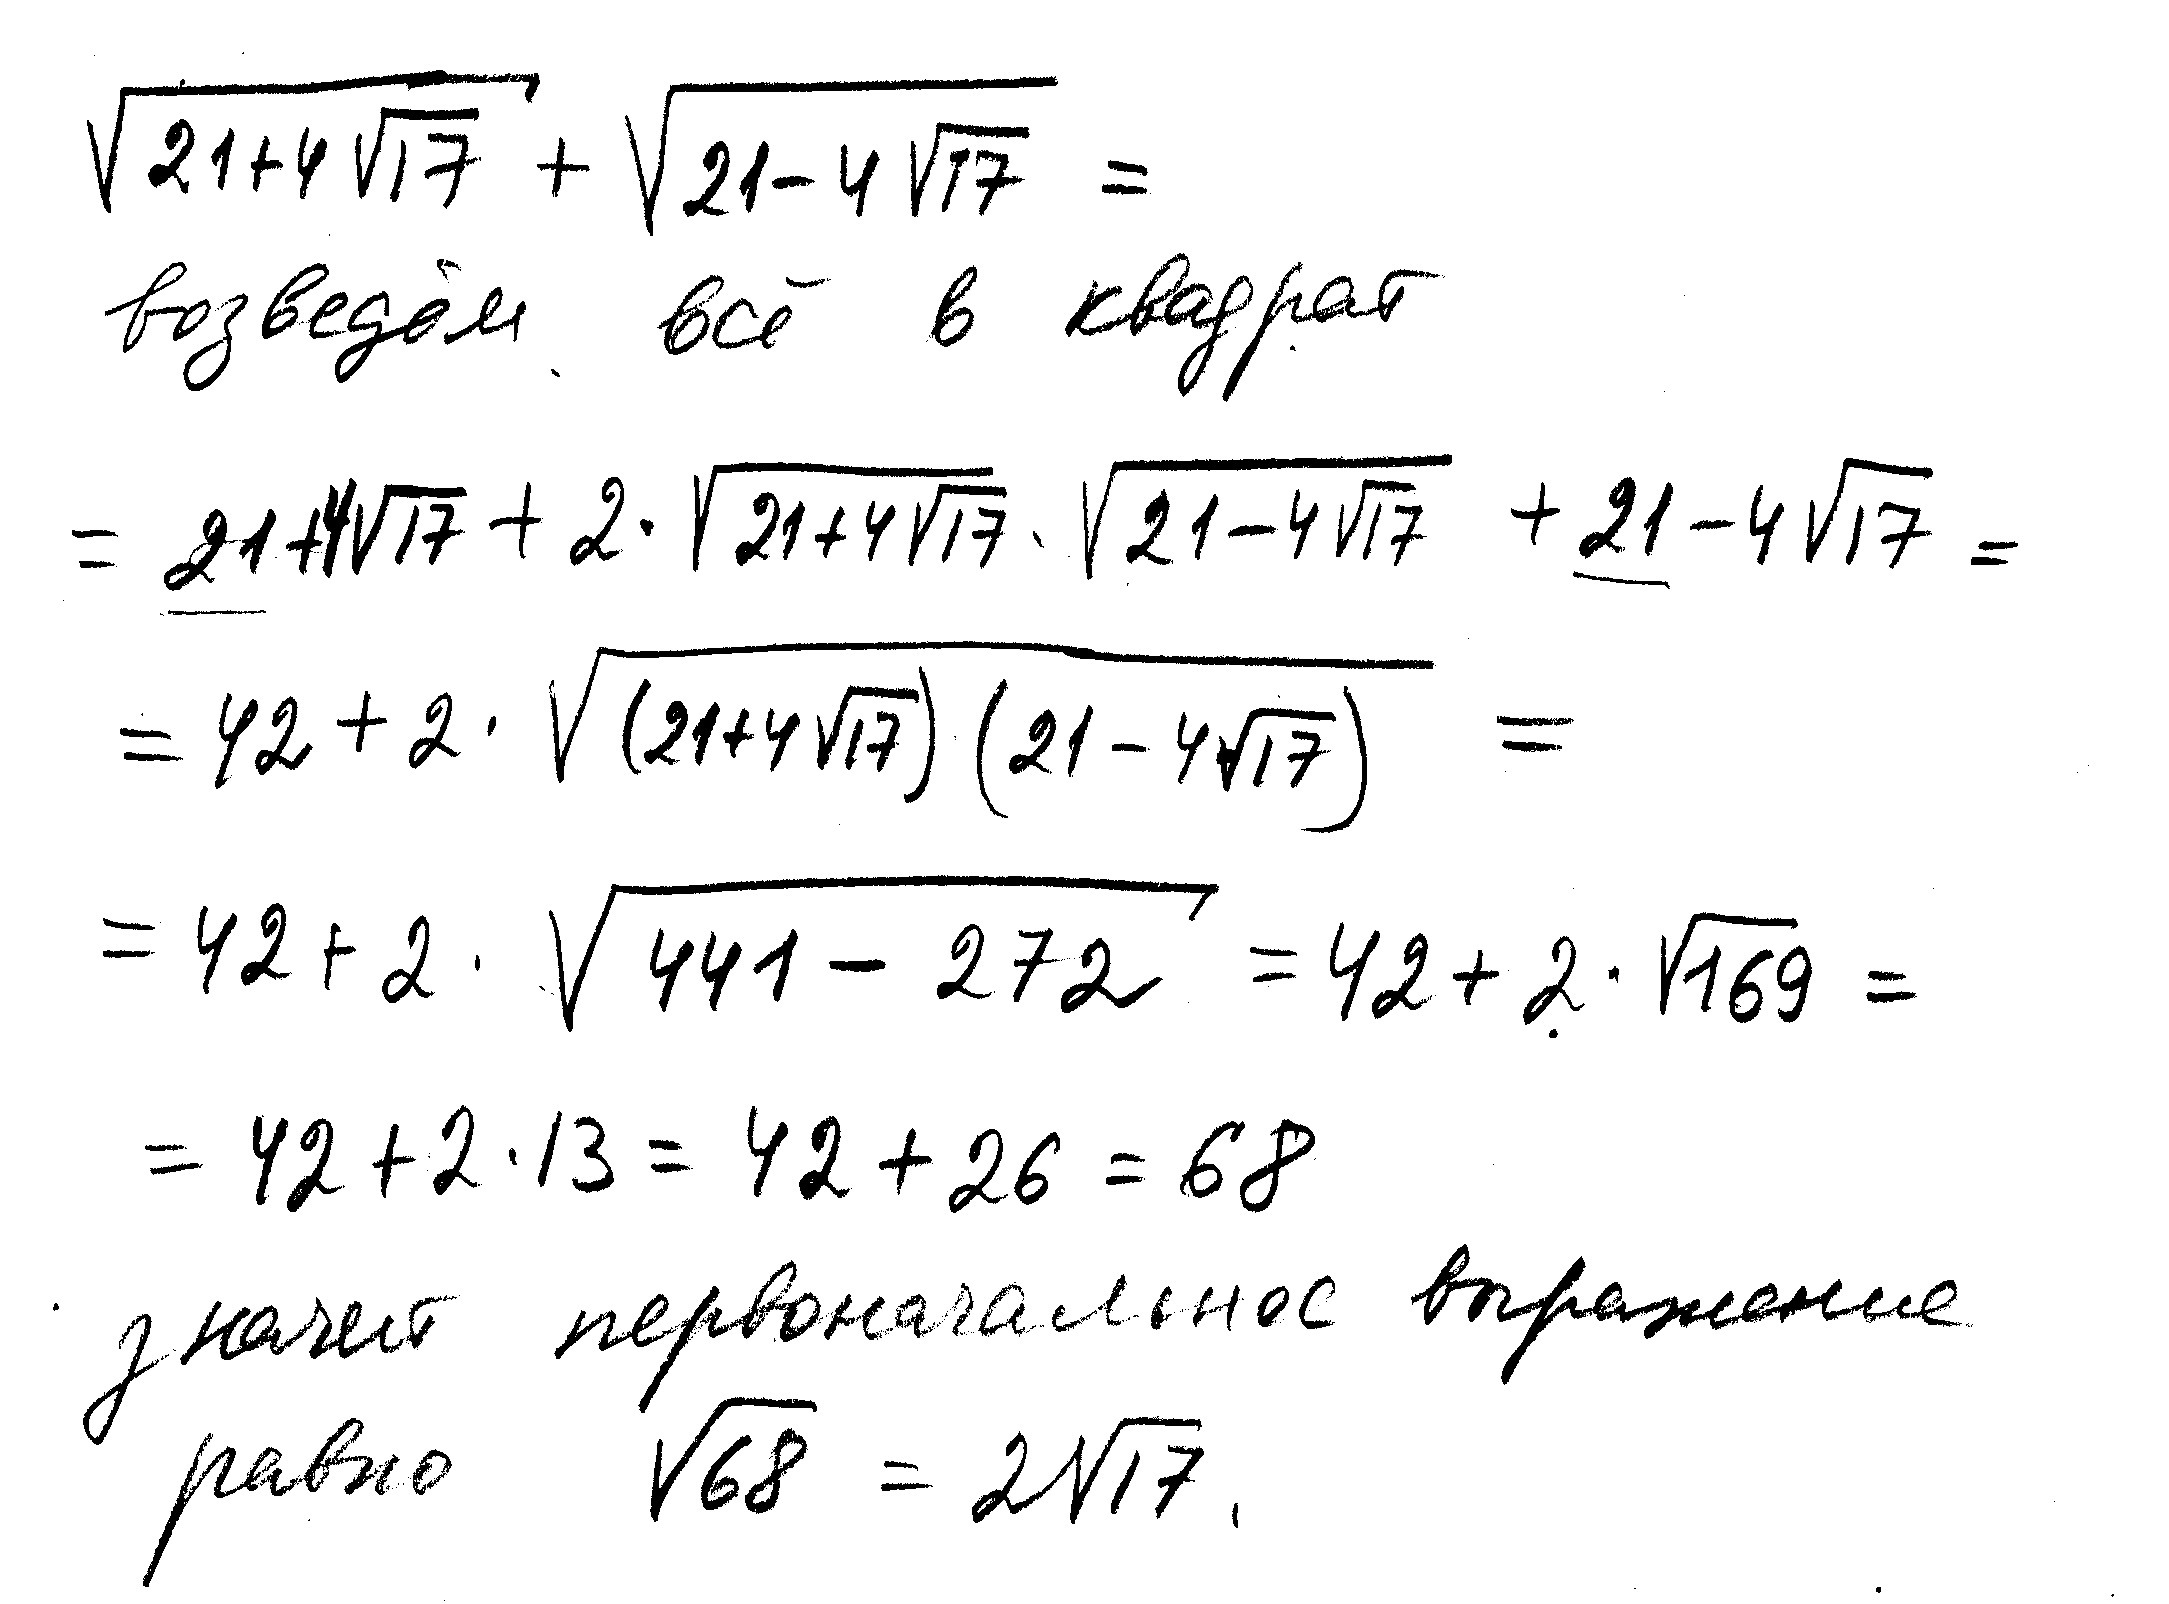 √(21+4√17) + √(21-4√17) =
возведём всё в квадрат
= 21+4√17 + 2·√(21+4√17)·√(21-4√17) + 21-4√17 =
= 42 + 2·√((21+4√17)(21-4√17)) =
= 42 + 2·√(441-272) = 42 + 2·√169 =
= 42 + 2·13 = 42 + 26 = 68
значит первоначальное выражение
равно √68 = 2√17.